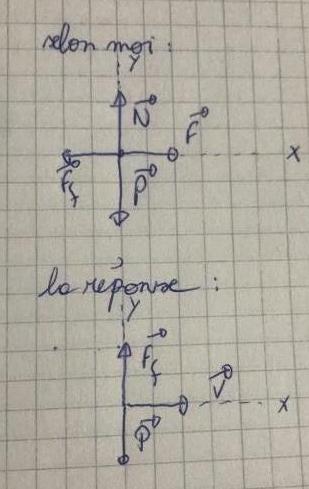 selon moi :
y
N
F
x
Ff
P
la réponse :
y
Ff
V
x
P